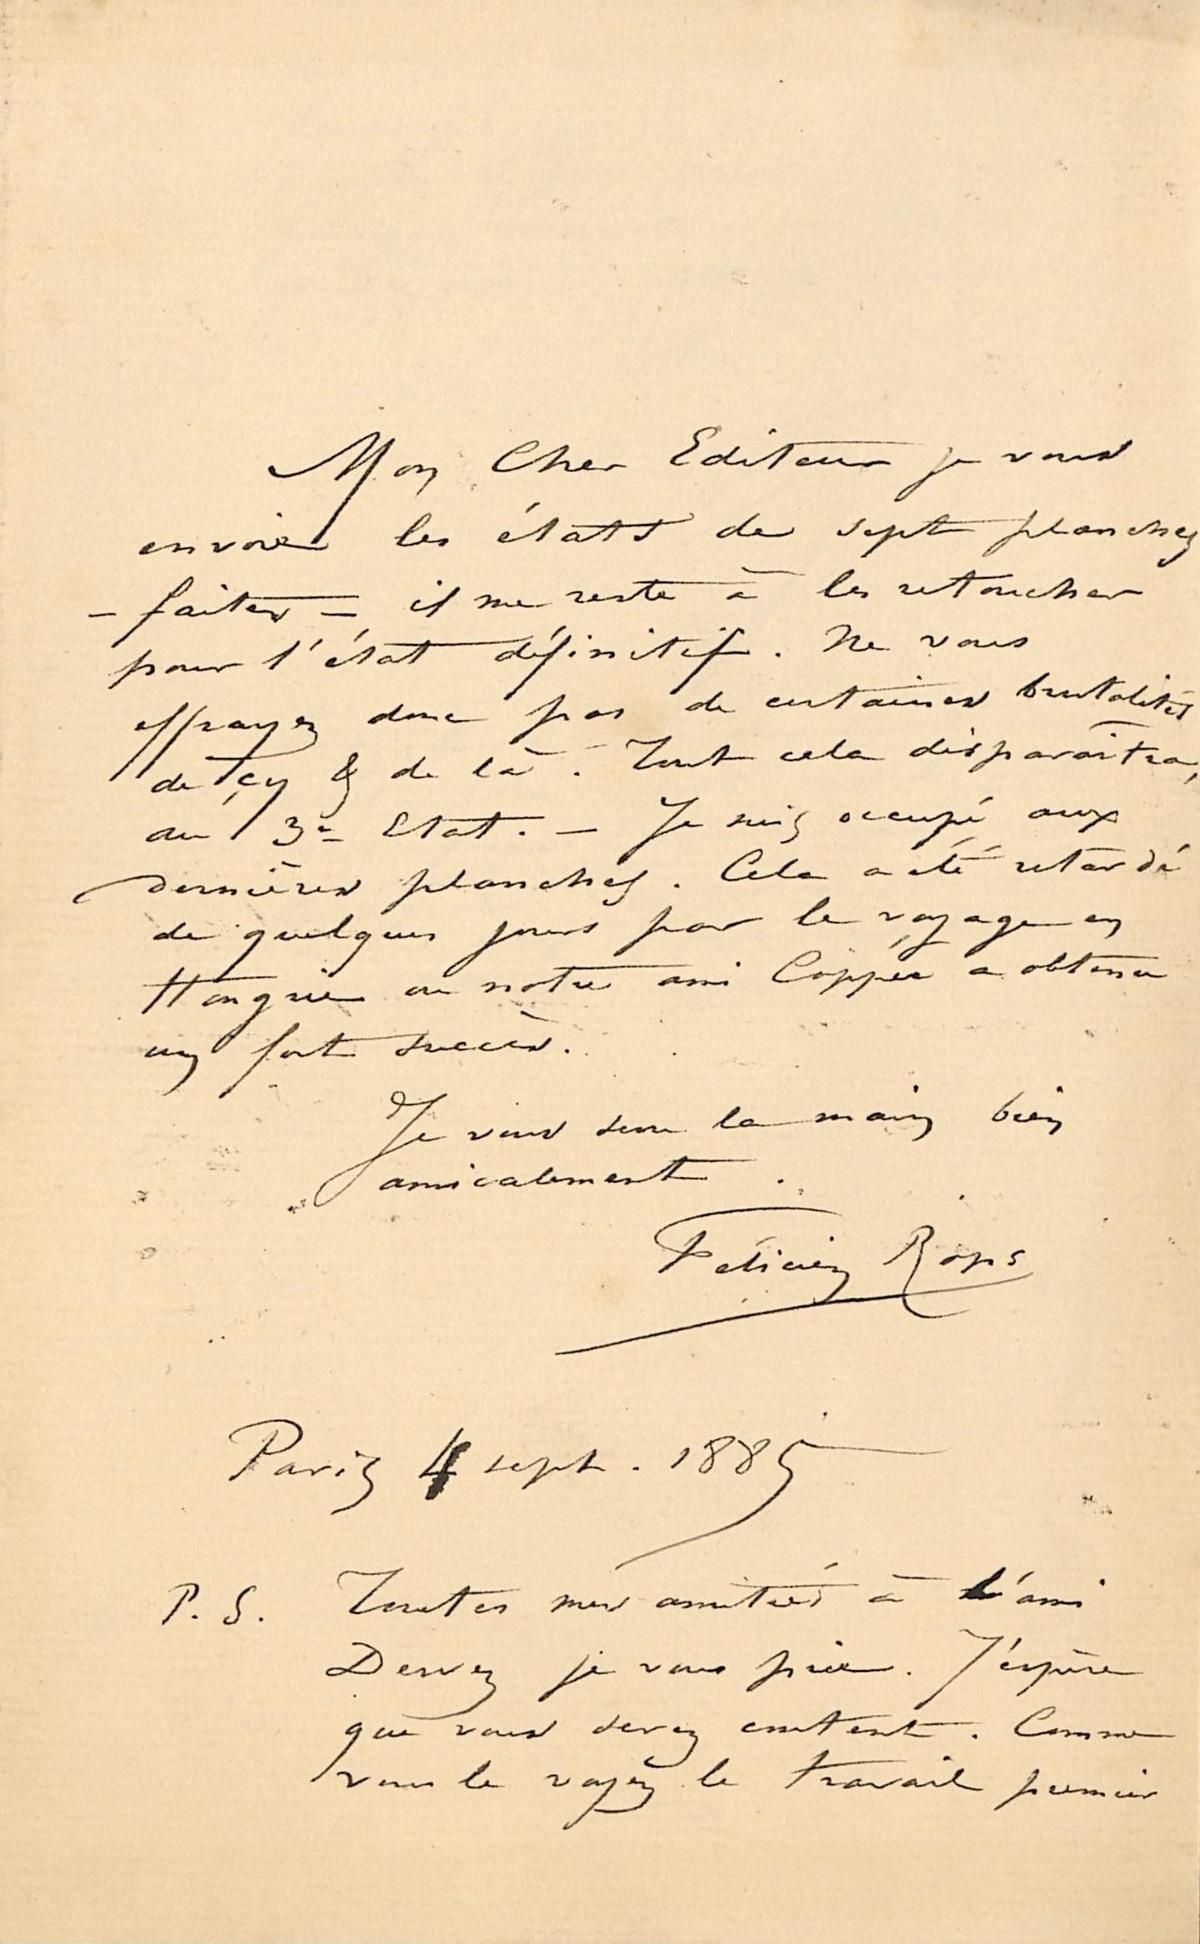 Mon Cher Editeur je vous
envoie les états de sept planches
– faites – il me reste à les retoucher
pour l'état définitif. Ne vous
effrayez donc pas de certaines brutalités
de çy & de là. Tout cela disparaîtra,
au 3e Etat. – Je suis occupé aux
dernières planches. Cela a été retardé
de quelques jours par le voyage en
Hongrie ou notre ami Coppée a obtenu
un fort succès.
Je vous serre la main bien
amicalement.
Félicien Rops
Paris 4 sept. 1885
P. S. Toutes mes amitiés à l'ami
je vous prie. J'espère
que vous serez content. Comme
vous le voyez le travail premier